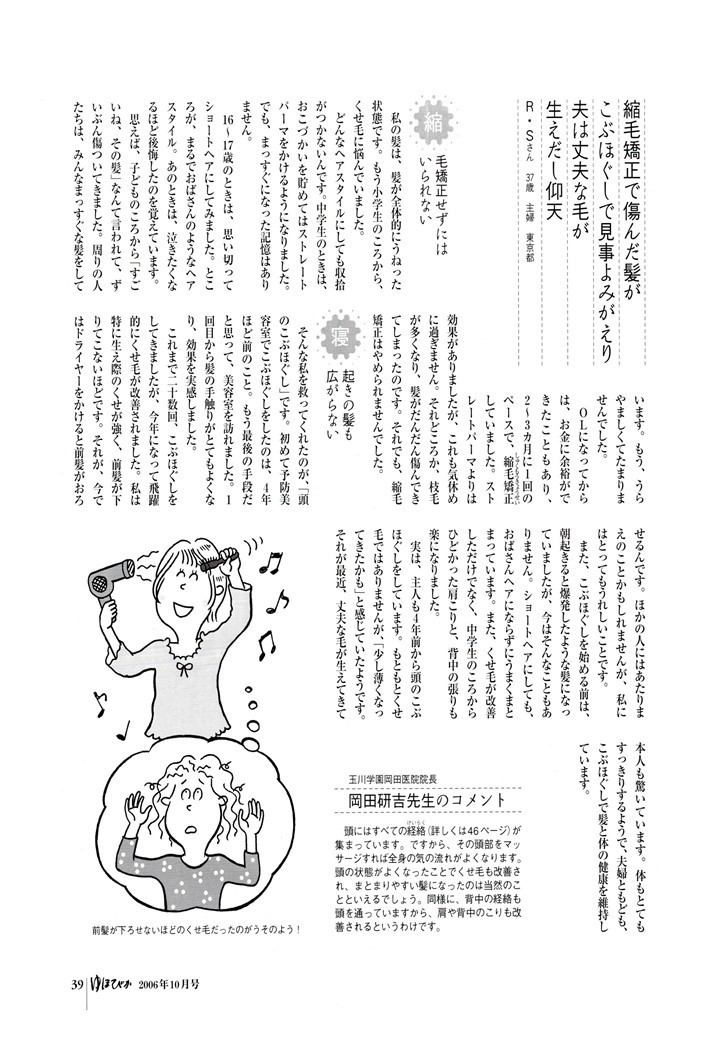 縮毛矯正で傷んだ髪が
こぶほぐしで見事よみがえり
夫は丈夫な毛が
生えだし仰天
R・Sさん 37歳 主婦 東京都
縮毛矯正せずには
いられない
私の髪は、髪が全体的にうねった
状態です。もう小学生のころから、
くせ毛に悩んでいました。
どんなヘアスタイルにしても収拾
がつかないんです。中学生のときは、
おこづかいを貯めてはストレート
パーマをかけるようになりました。
でも、まっすぐになった記憶はあり
ません。
16〜17歳のときは、思い切って
ショートヘアにしてみました。とこ
ろが、まるでおばさんのようなヘア
スタイル。あのときは、泣きたくな
るほど後悔したのを覚えています。
思えば、子どものころから「すご
いね、その髪」なんて言われて、ず
いぶん傷ついてきました。周りの人
たちは、みんなまっすぐな髪をして
います。もう、うら
やましくてたまりま
せんでした。
OLになってから
は、お金に余裕がで
きたこともあり、
2〜3ヵ月に1回の
ペースで、縮毛矯正
していました。スト
レートパーマよりは
効果がありましたが、これも気休め
に過ぎません。それどころか、枝毛
が多くなり、髪がだんだん傷んでき
てしまったのです。それでも、縮毛
矯正はやめられませんでした。
寝起きの髪も
広がらない
そんな私を救ってくれたのが、「頭
のこぶほぐし」です。初めて予防美
容室でこぶほぐしをしたのは、4年
ほど前のこと。もう最後の手段だ
と思って、美容室を訪れました。1
回目から髪の手触りがとてもよくな
り、効果を実感しました。
これまで二十数回、こぶほぐしを
してきましたが、今年になって飛躍
的にくせ毛が改善されました。私は
特に生え際のくせが強く、前髪が下
りてこないほどです。それが、今で
はドライヤーをかけると前髪がおろ
せるんです。ほかの人にはあたりま
えのことかもしれませんが、私に
はとってもうれしいことです。
また、こぶほぐしを始める前は、
朝起きると爆発したような髪になっ
ていましたが、今はそんなこともあ
りません。ショートヘアにしても、
おばさんヘアにならずにうまくまと
まっています。また、くせ毛が改善
しただけでなく、中学生のころから
ひどかった肩こりと、背中の張りも
楽になりました。
実は、主人も4年前から頭のこぶ
ほぐしをしています。もともとくせ
毛ではありませんが、「少し薄くなっ
てきたかも」と感じていたようです。
それが最近、丈夫な毛が生えてきて
本人も驚いています。体もとても
すっきりするようで、夫婦ともども、
こぶほぐしで髪と体の健康を維持し
ています。
玉川学園岡田医院院長
岡田研吉先生のコメント
頭にはすべての経絡(詳しくは46ページ)が
集まっています。ですから、その頭部をマッ
サージすれば全身の気の流れがよくなります。
頭の状態がよくなったことでくせ毛も改善さ
れ、まとまりやすい髪になったのは当然のこ
とといえるでしょう。同様に、背中の経絡も
頭を通っていますから、肩や背中のこりも改
善されるというわけです。
前髪が下ろせないほどのくせ毛だったのがうそのよう！
39 ゆほびか 2006年10月号